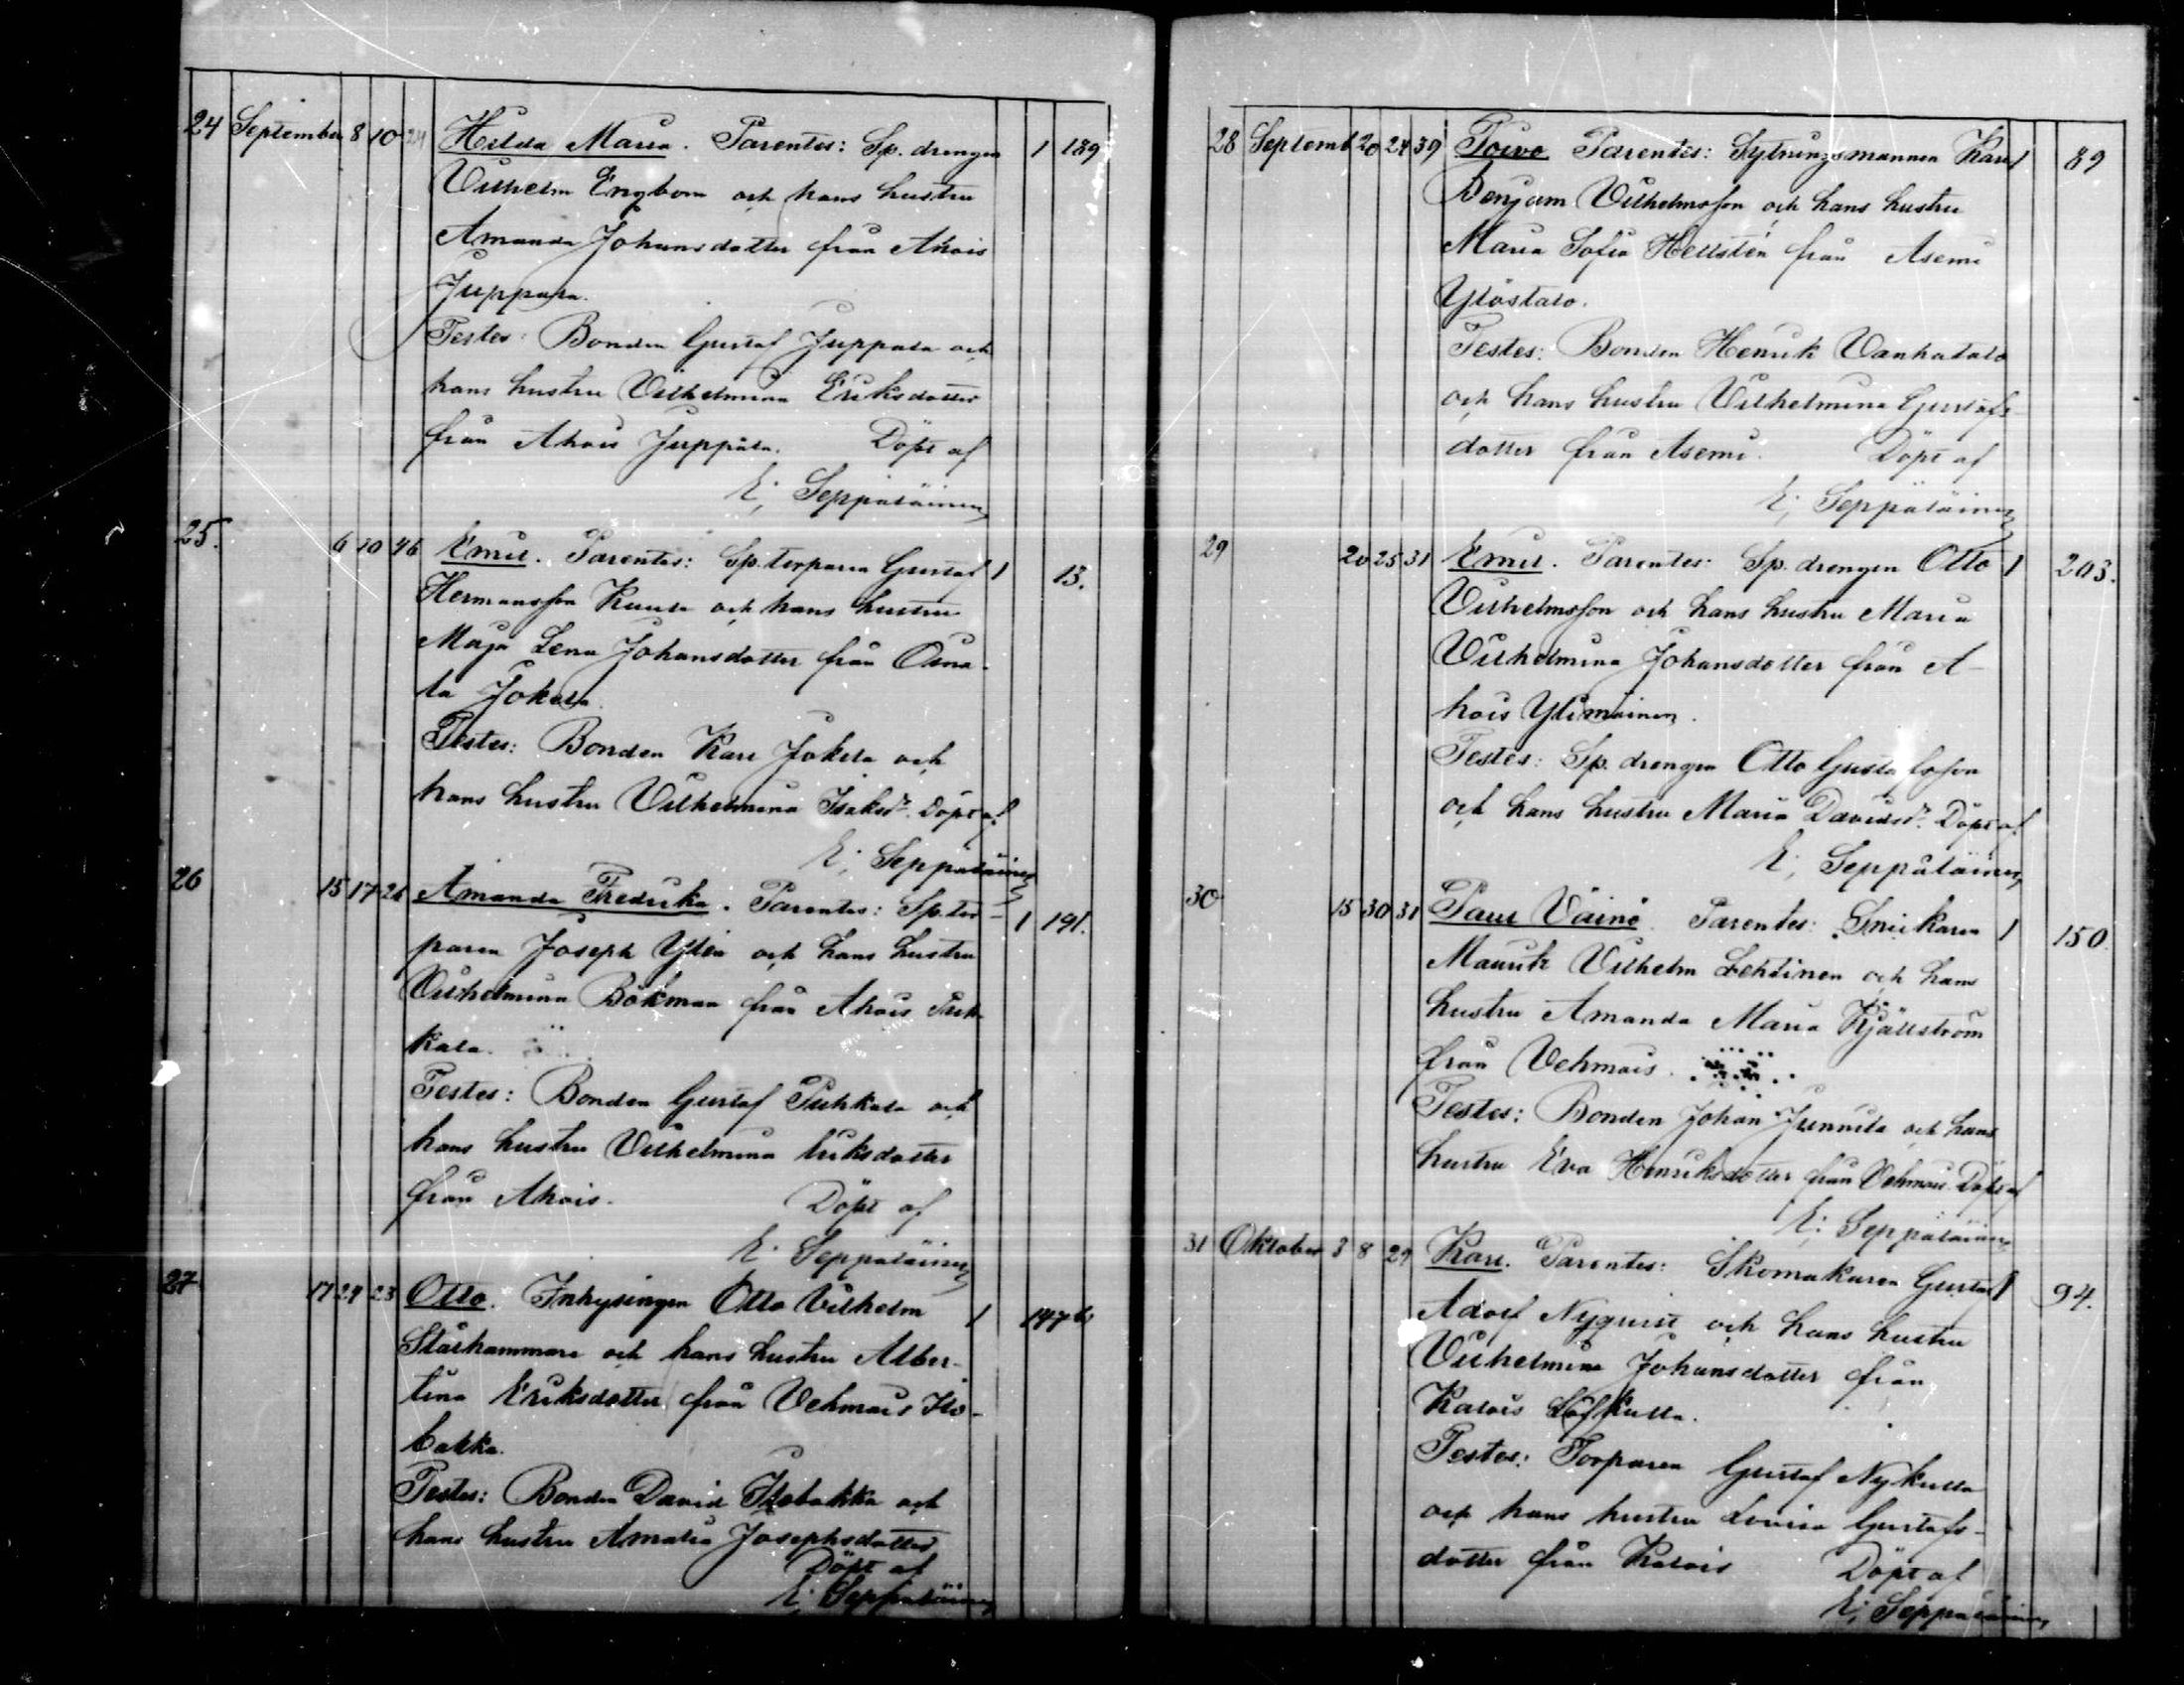 24 September 8 10 24 Hilda Maria. Parentes: Sp. drengen 1 189
Vilhelm Engbom och hans hustru
Amanda Johansdotter från Ahois
Juppala.
Testes: Bonden Gustaf Juppala och
hans hustru Vilhelmina Eriksdotter
från Ahois Juppala. Döpt af
E; Seppäläinen
25. 6 10 46 Emil. Parentes: Sp. torparen Gustaf 1 13.
Hermansson Kuula och hans hustru
Maja Lena Johansdotter från
la Jokela.
Testes: Bonden Karl Jokela och
hans hustru Vilhelmina Isaksdr. Döpt af
E; Seppäläinen
26 15 17 26 Amanda Fredrika. Parentes: Sp. tor- 1 191.
paren Joseph Ylén och hans hustru
Vilhelmina Bökman från Ahois Puh-
kala.
Testes: Bonden Gustaf Puhkala och
hans hustru Vilhelmina Eriksdotter
från Ahois. Döpt af
E. Seppäläinen
27 17 24 23 Otto. Inhysingen Otto Vilhelm 1 147 b
Stålhammare och hans hustru Alber-
tina Eriksdotter från Vehmais Iso-
bakka.
Testes: Bonden David Isobakka och
hans hustru Amalia Josephsdotter
Döpt af
E; Seppäläinen
28 Septemb 20 24 39 Toivo Parentes: Sytningsmannen Karl 1 89
Benjam Vilhelmsson och hans hustru
Maria Sofia Hellstén från Asemi
Ylöstalo.
Testes: Bonden Henrik Vanhatalo
och hans hustru Vilhelmina Gustafs-
dotter från Asemi. Döpt af
E; Seppäläinen
29 20 25 31 Emil. Parentes: Sp. drengen Otto 1 203.
Vilhelmsson och hans hustru Maria
Vilhelmina Johansdotter från A-
hois Ylimäinen.
Testes: Sp. drengen Otto Gustafsson
och hans hustru Maria Davidsdr. Döpt af
E; Seppäläinen
30 15 30 31 Paul Väinö. Parentes: Snickaren 1 150.
Maurits Vilhelm Lehtinen och hans
hustru Amanda Maria Kjällström
från Vehmais.
Testes: Bonden Johan Junnila och hans
hustru Eva Henriksdotter från Vehmais. Döpt af
E; Seppäläinen
31 Oktober 3 8 29 Karl. Parentes: Skomakaren Gustaf 1 94.
Adolf Nyquist och hans hustru
Vilhelmina Johansdotter från
Kalois Löfkulla.
Testes: Torparen Gustaf Nykulla
och hans hustru Lovisa Gustafs-
dotter från Kalois Döpt af
E; Seppäläinen